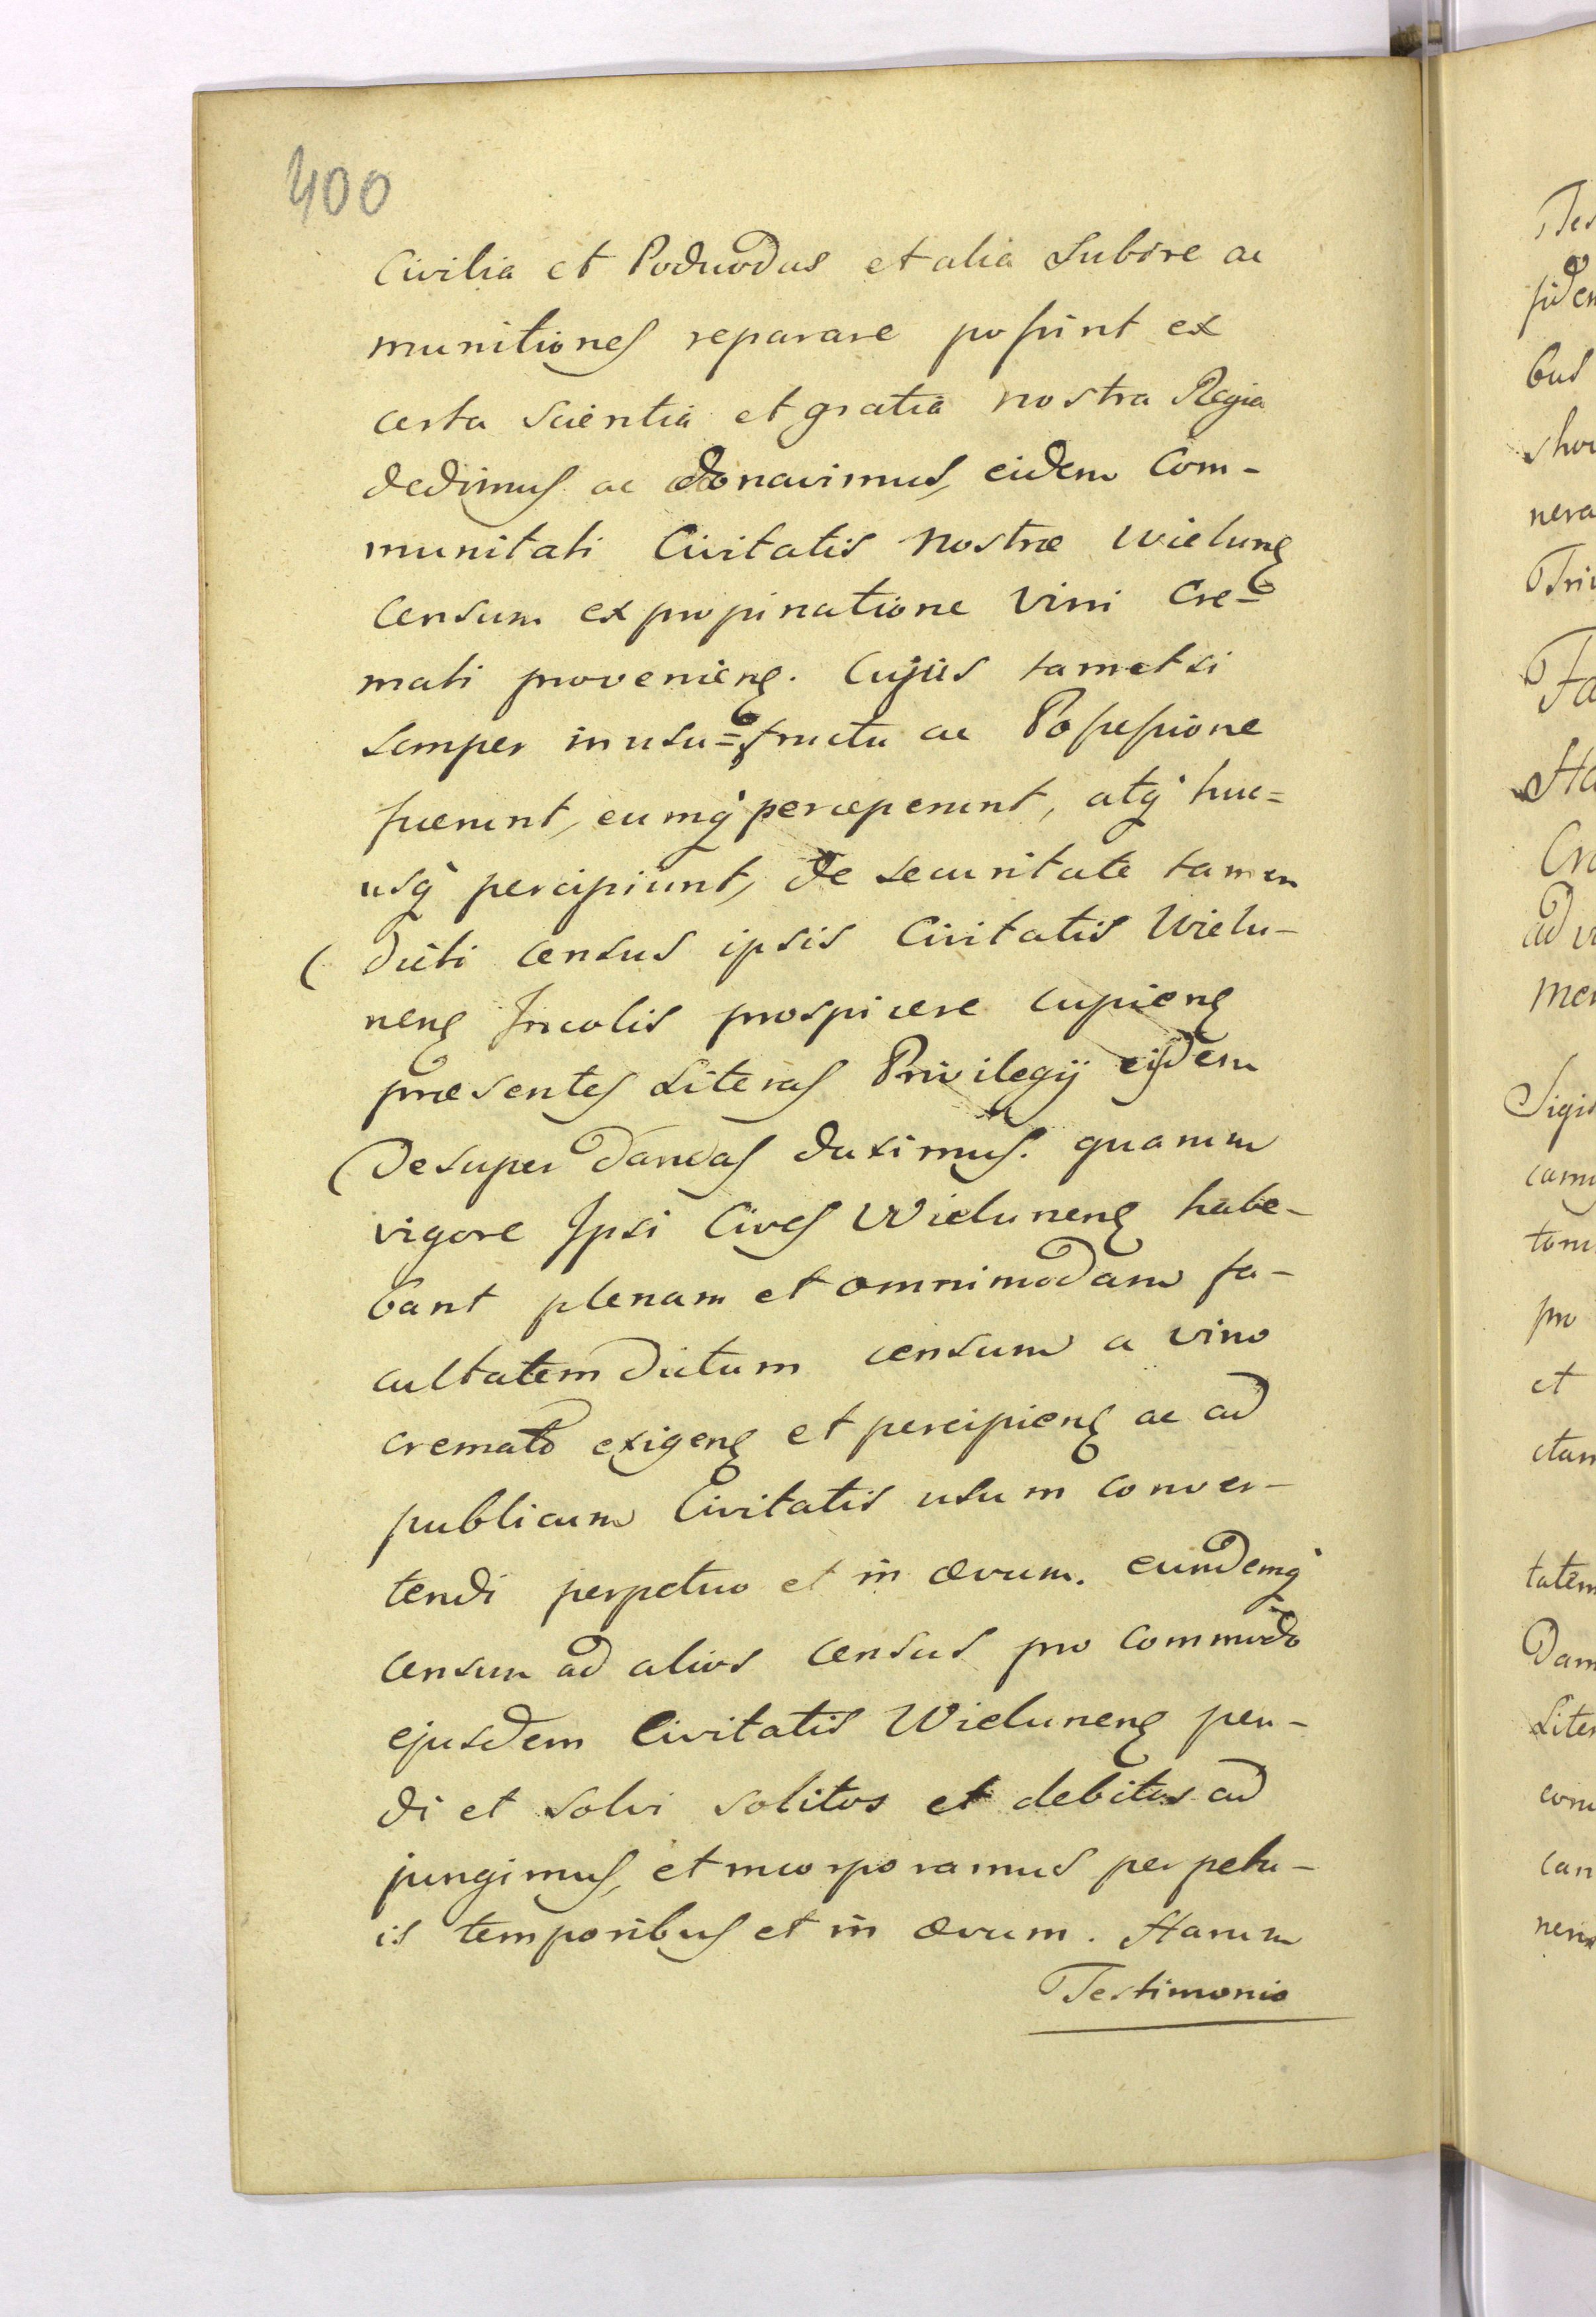 400
Civilia et Podwodas et alia Subire ac
munitiones reparare possint ex
certa scientia et gratia nostra Regia
dedimus ac donavimus, eidem Com-
munitati Civitatis nostræ wielunẽ
Censum ex propinatione vini Cre-
mati provenienẽ. Cujus tametsi
semper in usu=fructu ac Possessione
fuerunt, eumq́ perceperunt, atq́ huc=
usq́ percipiunt, de securitate tamen
dicti census ipsis Civitatis Wielu-
nenẽ Incolis prospicere cupienẽ
præsentes Literas Privilegij eisdem
Desuper dandas duximus. quarum
vigore Ipsi Cives Wielunenẽ habe-
bant plenam et omnimodam fa-
cultatem dictum censum a vino
cremato exigenẽ et percipienẽ ac ad
publicum Civitatis usum conver-
tendi perpetuo et in ævum. eundemq́
censum ad alios census pro commodo
ejusdem Civitatis Wielunenẽ pen-
di et solvi solitos et debitos ad
jungimus, et incorporamus perpetu-
is temporibus et in ævum. Harum
Testimonio